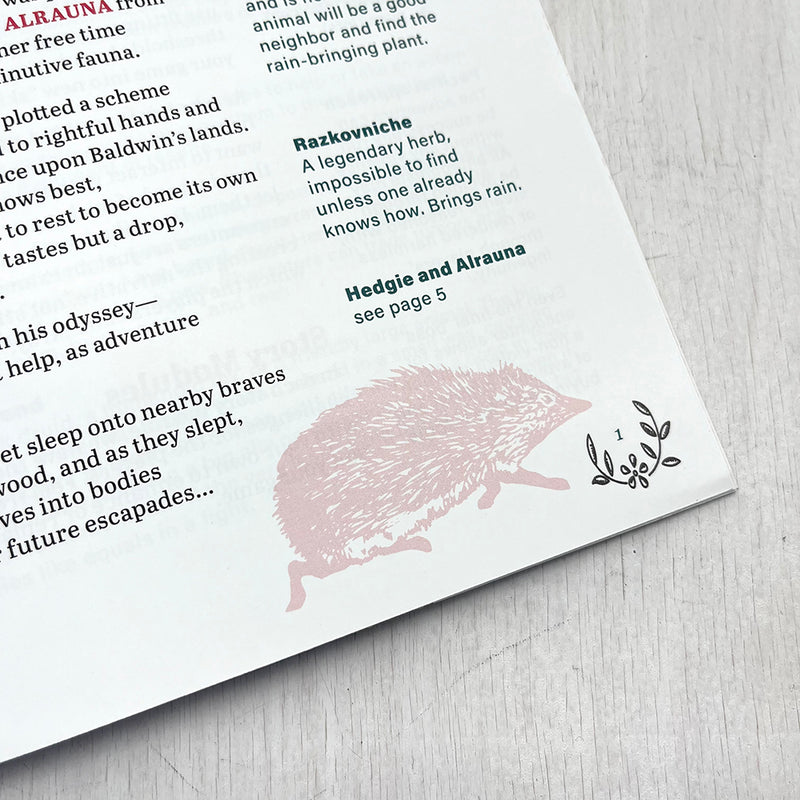 ALRAUNA from
her free time
inutive fauna.
plotted a scheme
to rightful hands and
nce upon Baldwin's lands.
nows best,
to rest to become its own
tastes but a drop,
n his odyssey—
help, as adventure
et sleep onto nearby braves
wood, and as they slept,
ves into bodies
future escapades...
and is
animal will be a good
neighbor and find the
rain-bringing plant.
Razkovniche
A legendary herb,
impossible to find
unless one already
knows how. Brings rain.
Hedgie and Alrauna
see page 5
1